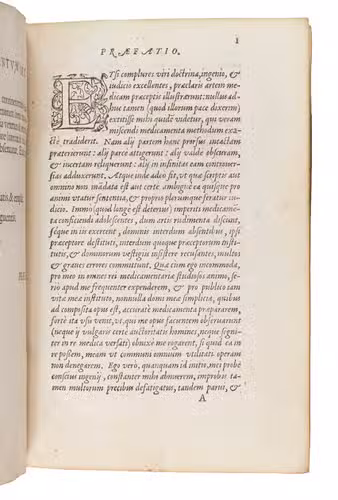 1
PRÆFATIO.
ETsi complures viri doctrina, ingenio, &
iudicio excellentes, præclarè artem me-
dicam præceptis illustrarunt: nullus ad-
huc tamen (quod illorum pace dixerim)
extitisse mihi quidē videtur, qui veram
miscendi medicamenta methodum exa-
ctè tradiderit. Nam alij partem hanc prorsus intactam
præterierunt: alij parcè attigerunt: alij valdè obscuram,
& incertam reliquerunt: alij in infinitas eam controuer-
sias adduxerunt. Atque inde adeò fit, vt quæ scriptis aut
omnino non mādata est aut certè ambiguè ea quisque pro
animi vtatur sententia, & proprio plerumque feratur iu-
dicio. Immò (quod longè est deterius) imperiti medicamē-
ta conficiendi adolescentes, dum artis rudimenta discunt,
séque in ea exercent, dominis interdum absentibus, ipsi
præceptore destituti, interdum quoque præceptorum insti-
tutis, & dominorum vestigiis insistere recusantes, multos
& graues errores committunt. Quæ cùm ego incommoda,
pro meo in omnes rei medicamentariæ studiosos animo, se-
riò apud me frequenter expenderem, & pro publico eam
vitæ meæ instituto, nonnulla domi meæ simplicia, quibus
ad composita opus est, accuratè medicamenta præpararem,
fortè ita vsu venit, vt, qui me opus facientem obseruarant
(neque ij vulgaris certè auctoritatis homines, neque segni-
ter in re medica versati) obnixè me rogarent, si quid ea in
re possem, meam vt communi omnium vtilitati operam
non denegarem. Ego verò, quanquam id initio, mei probè
conscius ingenij, constanter mihi abnuerem, improbis ta-
men multorum precibus defatigatus, tandem parui, &
A